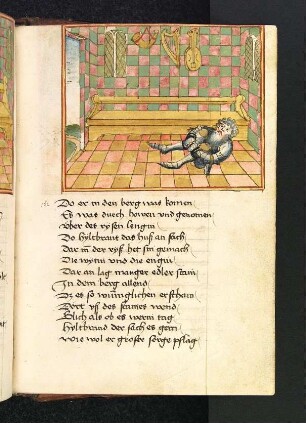 Do er in den berg was komen
Es was durch howen und genomen
Vber des rysen lengin
Do hyltbrant das hus an sach
Dar in der rys het sin gemach
Die wytin und die engin
Dar an lag manger edler stain
In dem berg allend
Dz es so wunglichen erschain
Dort vß des staines wend
Glich als ob es werin tag
Hyltbrand der sach es gern
wie wol er groser sorge pflag